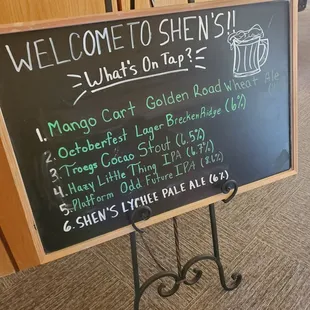 WELCOME TO SHEN'S!!
What's On Tap?
1. Mango Cart Golden Road Wheat Ale
2. Octoberfest Lager BreckenRidge (6%)
3. Troegs Cocao Stout (6.5%)
4. Hazy Little Thing IPA (6.7%)
5. Platform Odd Future IPA (8.6%)
6. SHEN'S LYCHEE PALE ALE (6%)